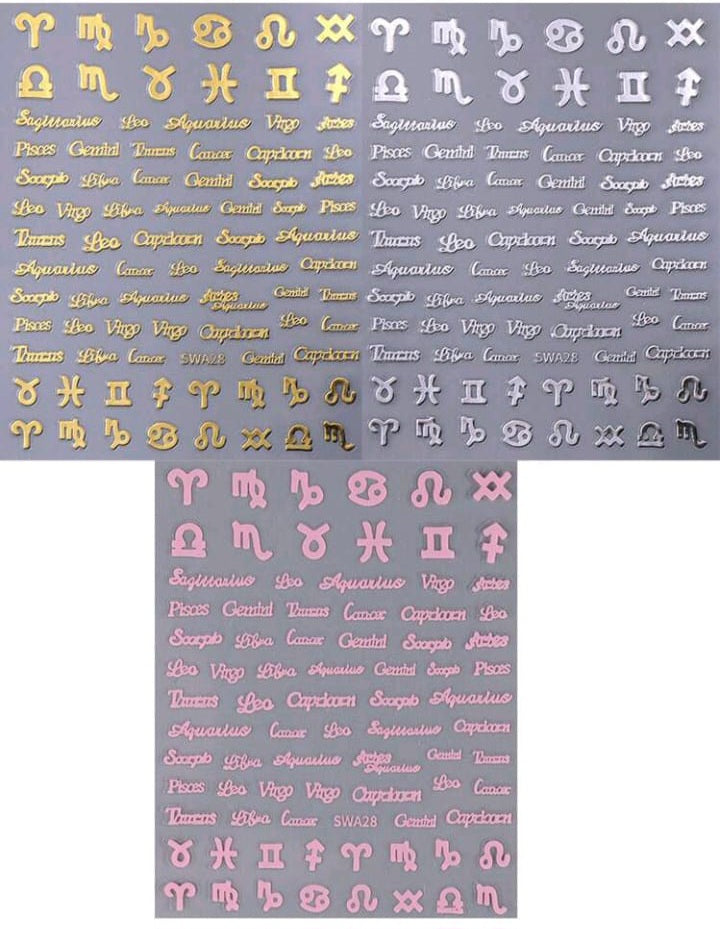 Sagittarius Leo Aquarius Virgo Aries
Pisces Gemini Taurus Cancer Capricorn Leo
Scorpio Libra Cancer Gemini Scorpio Aries
Leo Virgo Libra Aquarius Gemini Scorpio Pisces
Taurus Leo Capricorn Scorpio Aquarius
Aquarius Cancer Leo Sagittarius Capricorn
Scorpio Libra Aquarius Aries Aquarius Gemini Taurus
Pisces Leo Virgo Virgo Capricorn Leo Cancer
Taurus Libra Cancer SWA28 Gemini Capricorn
Sagittarius Leo Aquarius Virgo Aries
Pisces Gemini Taurus Cancer Capricorn Leo
Scorpio Libra Cancer Gemini Scorpio Aries
Leo Virgo Libra Aquarius Gemini Scorpio Pisces
Taurus Leo Capricorn Scorpio Aquarius
Aquarius Cancer Leo Sagittarius Capricorn
Scorpio Libra Aquarius Aries Aquarius Gemini Taurus
Pisces Leo Virgo Virgo Capricorn Leo Cancer
Taurus Libra Cancer SWA28 Gemini Capricorn
Sagittarius Leo Aquarius Virgo Aries
Pisces Gemini Taurus Cancer Capricorn Leo
Scorpio Libra Cancer Gemini Scorpio Aries
Leo Virgo Libra Aquarius Gemini Scorpio Pisces
Taurus Leo Capricorn Scorpio Aquarius
Aquarius Cancer Leo Sagittarius Capricorn
Scorpio Libra Aquarius Aries Aquarius Gemini Taurus
Pisces Leo Virgo Virgo Capricorn Leo Cancer
Taurus Libra Cancer SWA28 Gemini Capricorn